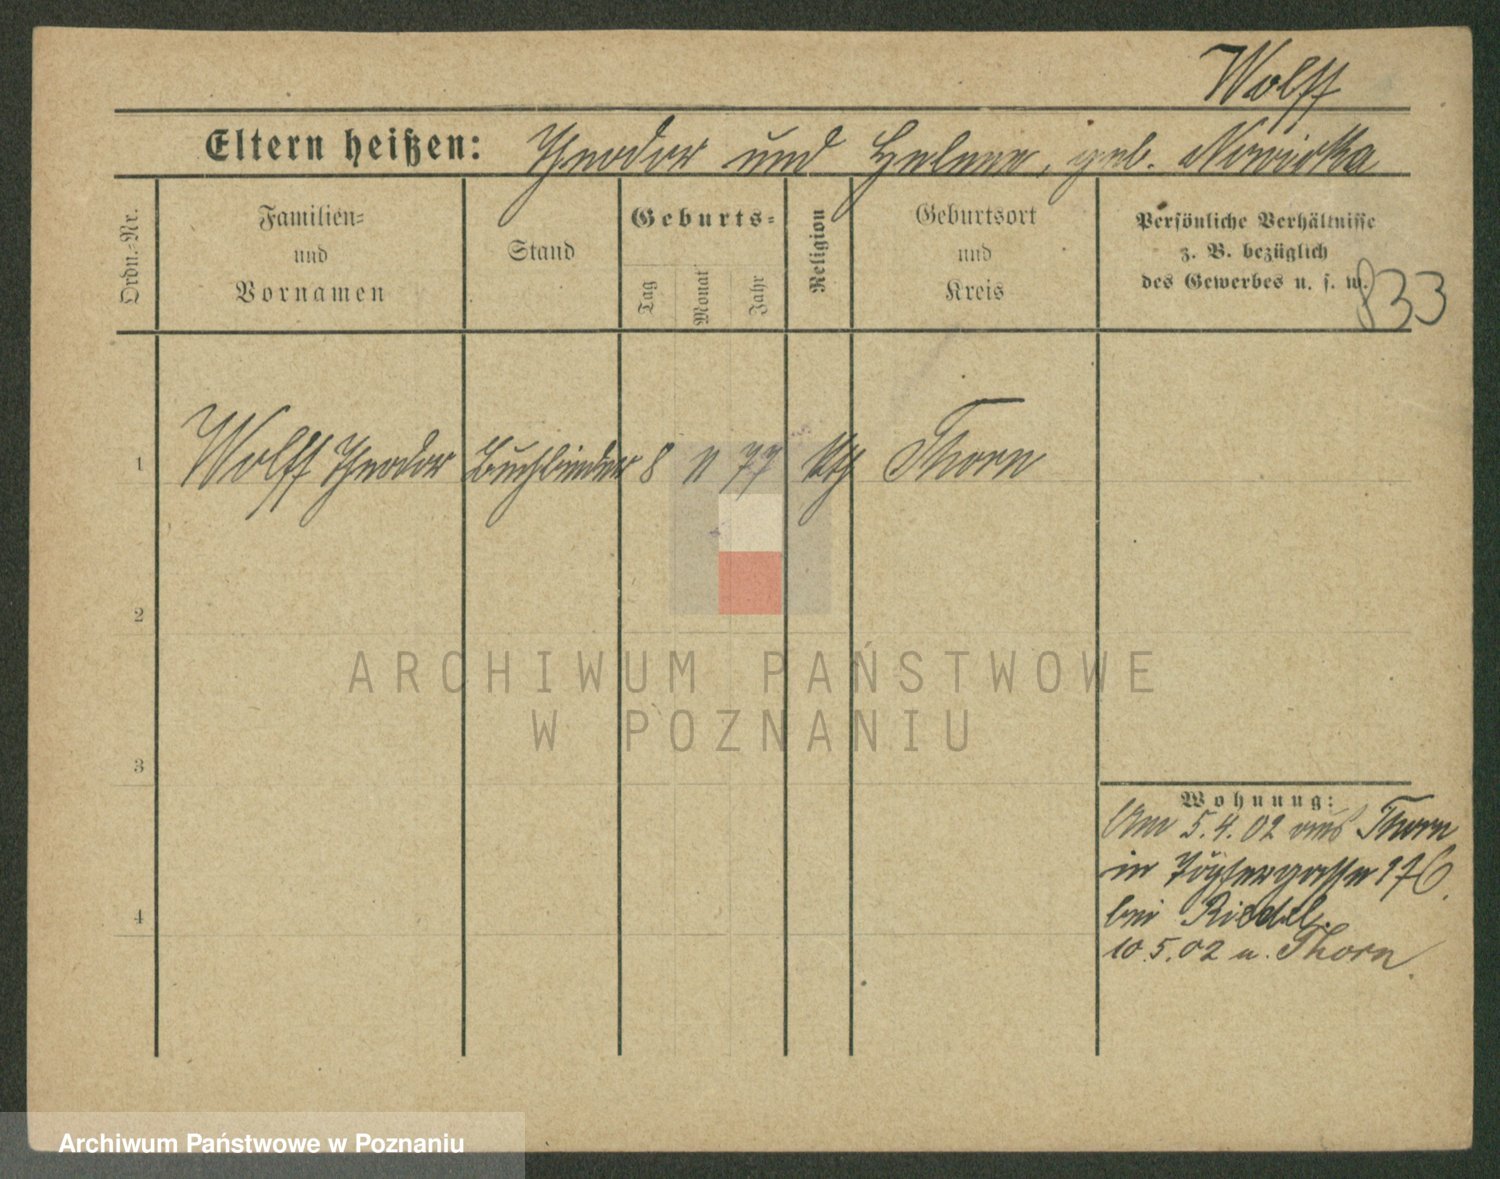 Wolff
Eltern heißen: Theodor und Helene, geb. Nowicka
Ordn.-Nr.
Familien-
und
Vornamen
Stand
Geburts-
Tag
Monat
Jahr
Religion
Geburtsort
und
Kreis
Persönliche Verhältnisse
z. B. bezüglich
des Gewerbes u. s. w.
833
1 Wolff Theodor Buchbinder 8 11 77 kth Thorn
2
3
4
Wohnung:
Am 5.4.02 aus Thorn
in Töpfergasse
bei Riedel.
10.5.02 n. Thorn.
ARCHIWUM PAŃSTWOWE
W POZNANIU
Archiwum Państwowe w Poznaniu